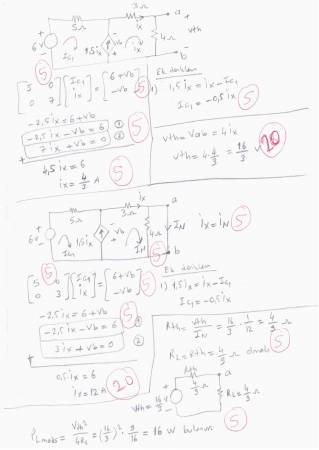 5Ω 3Ω ix a
+ 6V IG1 1,5ix Vb ix 4Ω Vth
b
[5 0 0 7] [IG1 ix] = [6+Vb -Vb] 5
Ek denklem
1) 1,5ix = ix - IG1
IG1 = -0,5ix
5
-2,5ix = 6+Vb
-2,5ix - Vb = 6 ①
7ix + Vb = 0 ②
5
4,5ix = 6
ix = 4/3 A 5
Vth = Vab = 4ix
Vth = 4.4/3 = 16/3 V 20
5Ω 3Ω ix a
6V IG1 1,5ix Vb IN 4Ω IN ix = iN
5 b
[5 0 0 3] [IG1 ix] = [6+Vb -Vb] 5
Ek denklem
1) 1,5ix = ix - IG1
IG1 = -0,5ix
-2,5ix = 6+Vb
-2,5ix - Vb = 6 ①
3ix + Vb = 0 ②
5
0,5ix = 6
ix = 12A 20
Rth = Vth/IN = 16/3 . 1/12 = 4/9 Ω
RL = Rth = 4/9 Ω olmalı 5
Rth a
4/9 Ω
Vth = 16/3 V RL = 4/9 Ω
PLmaks = Vth²/4RL = (16/3)² . 9/16 = 16 W bulunur 5